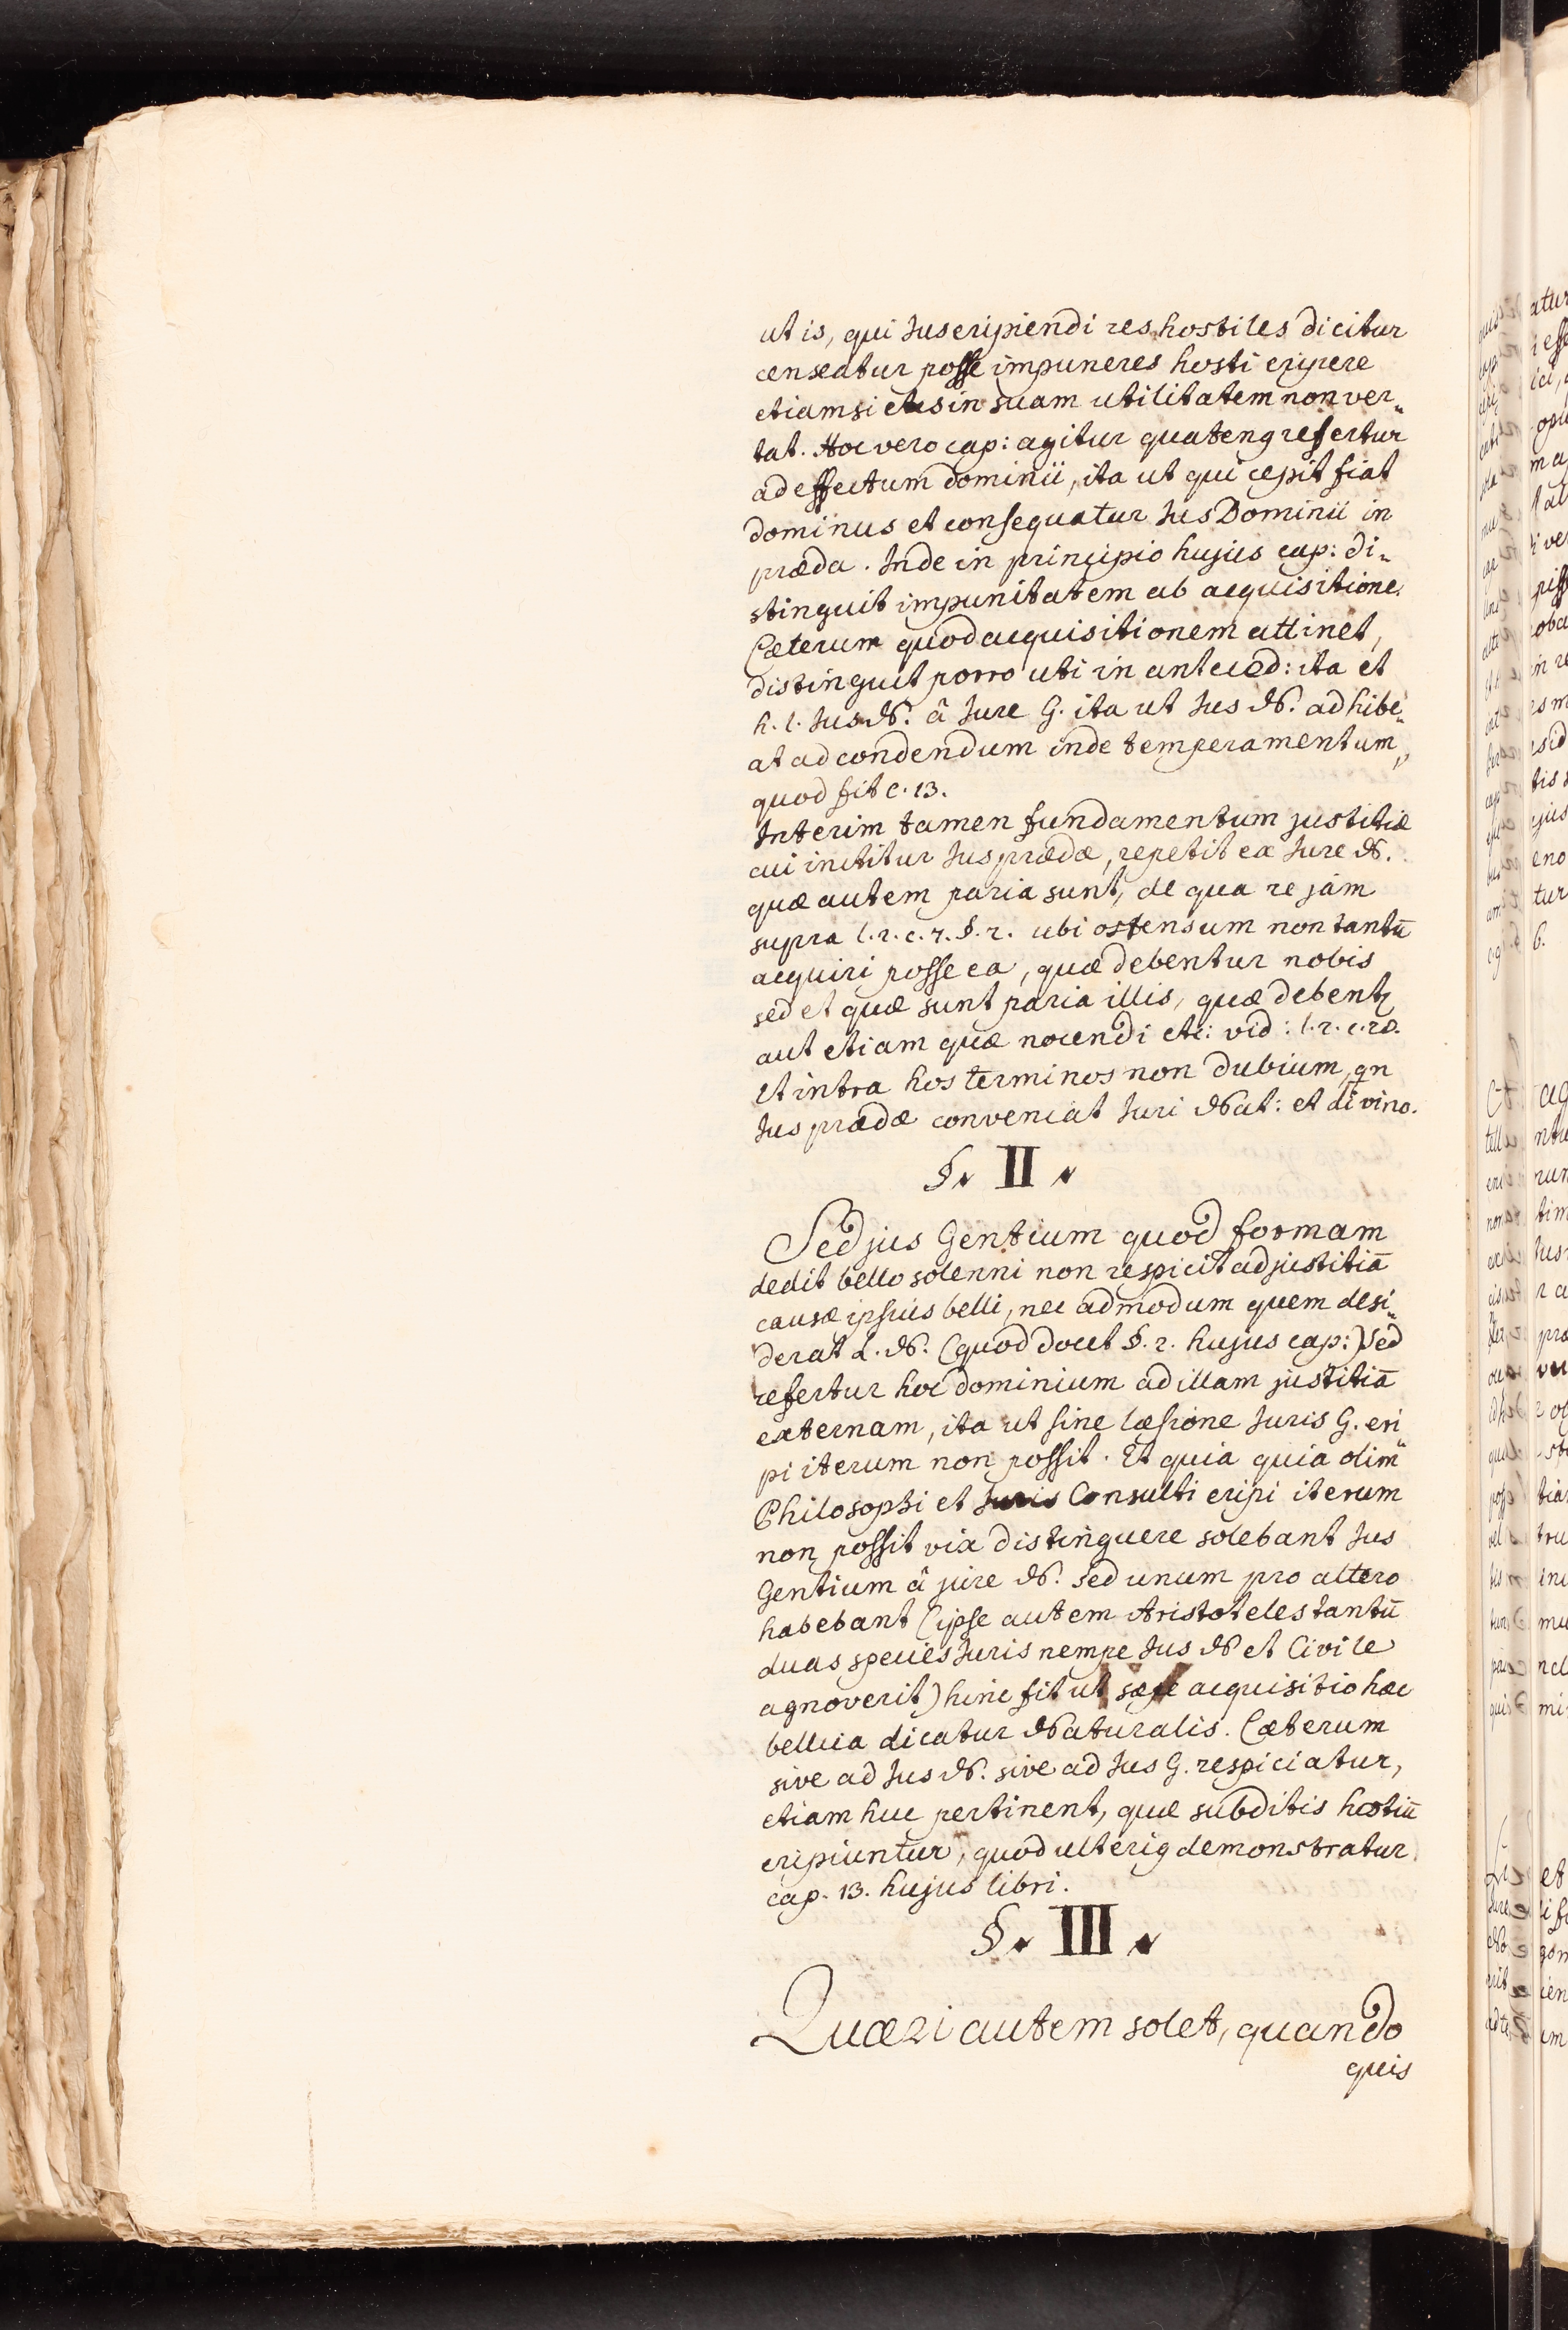 ut is, qui Jus eripiendi res hostiles dicitur
censeatur posse impune res hosti eripere
etiamsi eas in suam utilitatem non ver„
tat. Hoc vero cap: agitur quateng refertur
ad effectum dominii, ita ut qui cepit fiat
dominus et consequatur Jus Dominii in
præda. Inde in principio hujus cap: di„
stinguit impunitatem ab acquisitione.
Cæterum quod acquisitionem attinet,
distinguit porro uti in anteced: ita et
h. l. Jus N. â Jure G. ita ut Jus N. adhibe„
at ad condendum inde temperamentum,
quod fit c. 13.
Interim tamen fundamentum justitiæ
cui inititur Jus prædæ, repetit ex Jure N.
quæ autem paria sunt, de qua re jam
supra l. 2. c. 7. §. 2. ubi ostensum non tantū
acquiri posse ea, quæ debentur nobis
sed et quæ sunt paria illis, quæ debentɼ
aut etiam quæ nocendi etc: vid: l. 2. c. 20.
Et intra hos terminos non dubium, qn
Jus prædæ conveniat Juri Nat: et divino.
§. II.
Sed jus Gentium quod formam
dedit bello solenni non respicit ad justitiā
causæ ipsius belli, nec ad modum quem desi„
derat L. N. (quod docet §. 2. hujus cap:) Sed
refertur hoc dominium ad illam justitiā
externam, ita ut sine læsione Juris G. eri„
pi iterum non possit. Et quia quia olim
Philosophi et Juris Consulti eripi iterum
non possit vix distinguere solebant Jus
Gentium â jure N. sed unum pro altero
habebant (ipse autem Aristoteles tantū
duas species Juris nempe Jus N et Civile
agnoverit) hinc fit ut sæpe acquisitio hæc
bellica dicatur Naturalis. Cæterum
sive ad Jus N. sive ad Jus G. respiciatur,
etiam huc pertinent, quæ subditis hostiū
eripiuntur, quod ulterig demonstratur
cap. 13. hujus libri.
§. III.
Quæri autem solet, quando
quis